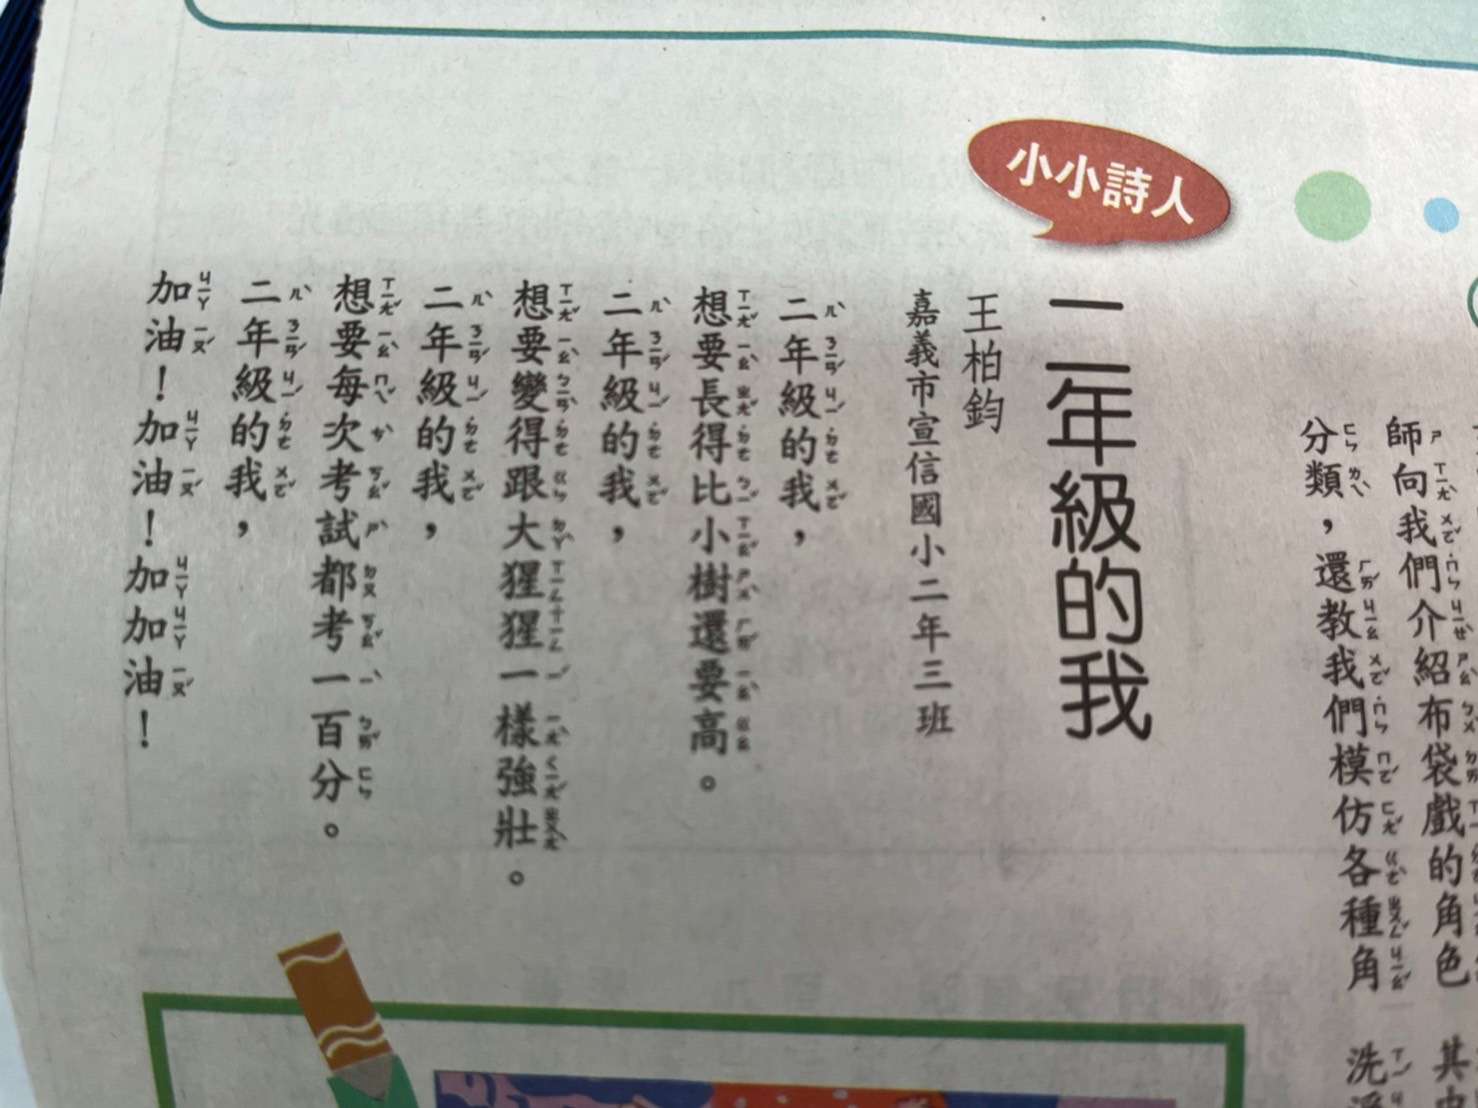 小小詩人
師向我們介紹布袋戲的角色
分類，還教我們模仿各種角
二年級的我
王柏鈞
嘉義市宣信國小二年三班
二年級的我，
想要長得比小樹還要高。
二年級的我，
想要變得跟大猩猩一樣強壯。
二年級的我，
想要每次考試都考一百分。
二年級的我，
加油！加油！加加油！
其中
洗